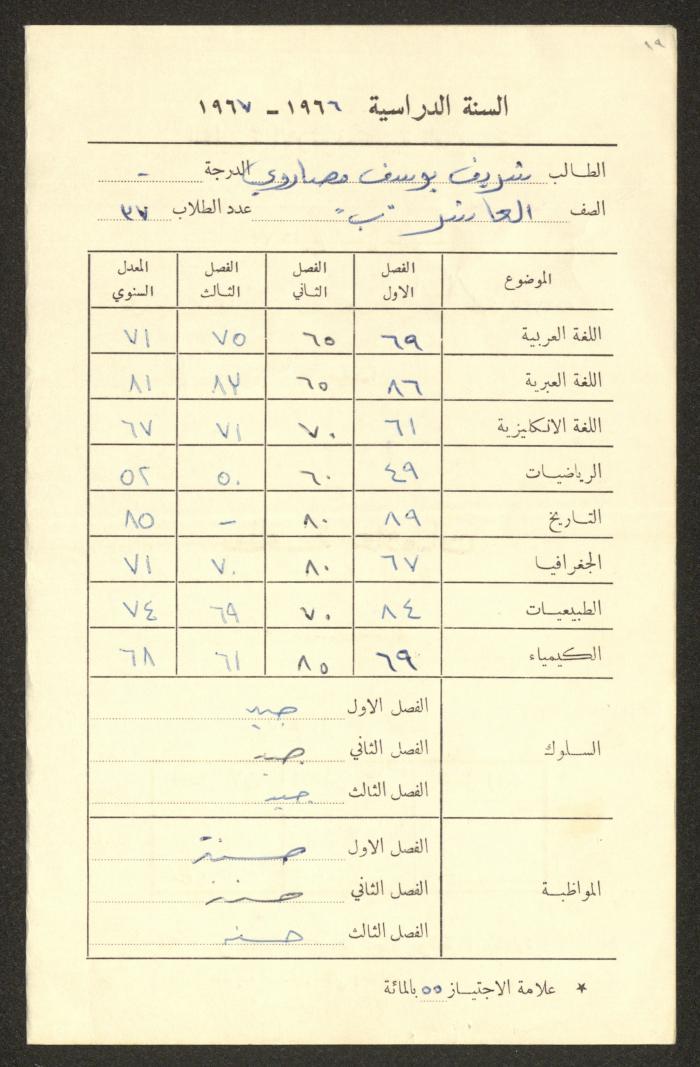 ١٩
السنة الدراسية ١٩٦٦ - ١٩٦٧
الطالب شريف يوسف مصاروي الدرجة -
الصف العاشر "ب" عدد الطلاب ٣٧
الموضوع الفصل الاول الفصل الثاني الفصل الثالث المعدل السنوي
اللغة العربية ٦٩ ٦٥ ٧٥ ٧١
اللغة العبرية ٨٦ ٦٥ ٨٢ ٨١
اللغة الانكليزية ٦١ ٧٠ ٧١ ٦٧
الرياضيات ٤٩ ٦٠ ٥٠ ٥٢
التاريخ ٨٩ ٨٠ - ٨٥
الجغرافيا ٦٧ ٨٠ ٧٠ ٧١
الطبيعيات ٨٤ ٧٠ ٦٩ ٧٤
الكيمياء ٦٩ ٨٥ ٦١ ٦٨
السلوك
الفصل الاول جيد
الفصل الثاني جيد
الفصل الثالث جيد
المواظبة
الفصل الاول حسنة
الفصل الثاني حسنة
الفصل الثالث حسنه
* علامة الاجتياز ٥٥ بالمائة